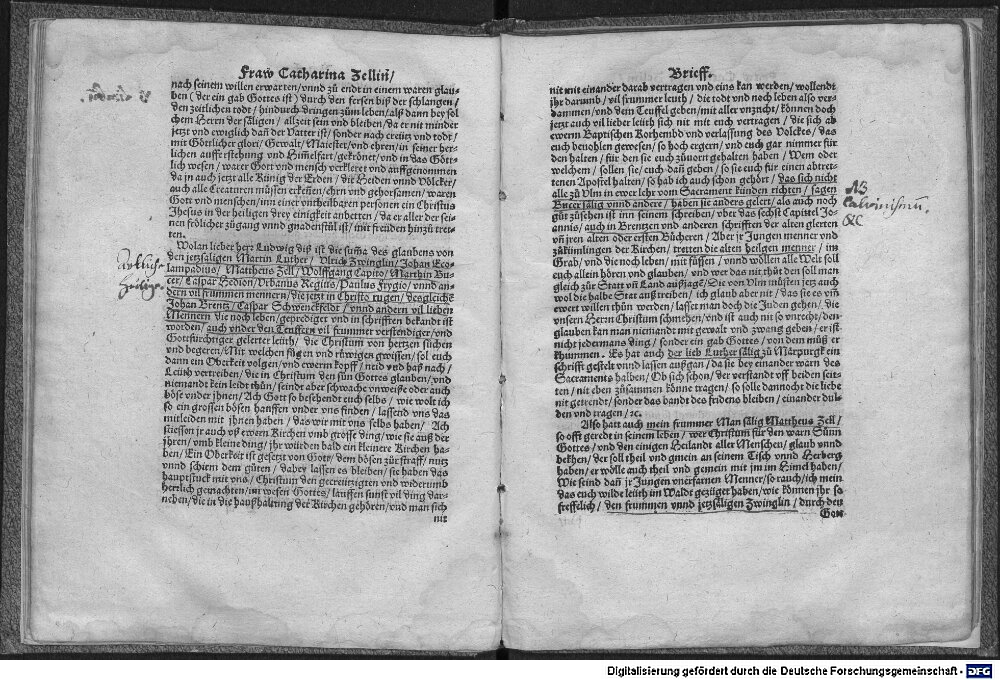 Fraw Catharina Zellin/
nach seinem willen erwarten/vnnd zů endt in einem waren glau-
ben (der ein gab Gottes ist) durch den fersen biß der schlangen/
den zeitlichen todt/hindurch dringen zům leben/als dann bey sol
chem Herrn der säligen/allzeit sein vnd bleiben/da er nit minder
jetzt vnd ewiglich dañ der Vatter ist/sonder nach creütz vnd todt/
mit Göttlicher glori/Gewalt/Maiestet/vnd ehren/in seiner her-
lichen aufferstehung vnd Himelfart/gekrönet/vnd in das Gött-
lich wesen/warer Gott vnd mensch verkleret vnd auffgenommen
da jn auch jetzt alle Künig der Erden/die Heiden vnnd Völcker/
auch alle Creaturen müsen erkeñen/ehrn vnd gehorsamen/waren
Gott vnd menschen/inn einer vntheilbaren personen ein Christus
Jhesus in der heiligen drey einigkeit anbetten/da er aller der sei-
nen frölicher zůgang vnnd gnadenstůl ist/mit freüden hinzů tret-
ten.
Wolan lieber herr Ludwig diß ist die sum̃a des glaubens von
den jetzsäligen Martin Luther/Vlrich Zwinglin/Johan Eco-
lampadius/Mattheus Zell/Wolffgang Capito/Marthin Bu-
cer/Caspar Hedion/Vrbanus Regius/Paulus Frygio/vnnd an-
dern vil frummen mennern/die jetzt in Christo rugen/desgleichē
Johan Brentz/Caspar Schwenckfeldt/vnnd andern vil lieben
Mennern die noch leben/geprediget vnd in schrifften bekandt ist
worden/auch vnder den Teuffern vil frummer verstendiger/vnd
Gottförchtiger gelerter leüth/die Christum von hertzen süchen
vnd begeren/Mit welchen fůgen vnd růwigen gwissen/sol euch
dann ein Oberkeit volgen/vnd ewerm kopff/neid vnd haß nach/
Leüth vertreiben/die in Christum den sůn Gottes glauben/vnd
niemandt kein leidt thůn/seindt aber schwache vnweiße oder auch
böse vnder jhnen/Ach Gott so besehendt euch selbs/wie wolt ich
so ein grossen bösen hauffen vnder vns finden/lassend vns das
mitleiden mit jhnen haben/das wir mit vns selbs haben/Ach
stiessen jr auch vß ewern Kirchen vmb grosse ding/wie sie auß der
jhren/vmb kleine ding/jhr würden bald ein kleinere Kirchen ha-
ben/Ein Oberkeit ist gesetzt von Gott/dem bösen zůr straff/nutz
vnnd schirm dem gůten/dabey lassen es bleiben/sie haben das
hauptstuck mit vns/Christum den gecreützigten vnd widerumb
herrlich gemachten/im wesen Gottes/laussen sunst vil ding dar-
neben/die in die haußhaltung der Kirchen gehören/vnd man sich
nit
Brieff.
nit mit einander darab vertragen vnd eins kan werden/wollendt
jhr darumb/vil frummer leüth/die todt vnd noch leben also ver-
dammen/vnd dem Teuffel geben/mit aller vnzucht/künden doch
jetzt auch vil lieder leüth sich mit euch vertragen/die sich ab
ewerm Baptischen Korhembd vnd verlassung des Volckes/das
euch beuohlen gewesen/so hoch ergern/vnd euch gar nimmer für
den halten/für den sie euch zůuorn gehalten haben/Wem oder
welchem/sollen sie/euch dañ geben/so sie euch für einen abtret-
tenen Apostel halten/so hab ich auch schon gehört/das sich nicht
alle zů Vlm in ewer lehr vom Sacrament künden richten/sagen
Bucer sälig vnnd andere/haben sie anders gelert/als auch noch
gůt zůsehen ist inn seinem schreiben/vber das sechst Capittel Jo-
annis/auch in Brentzen vnd anderen schrifften der alten glerten
vñ jren alten oder ersten Bücheren/Aber jr Jungen menner vnd
zůkünnlingen der Kirchen/tretten die alten heilgen menner/im
Grab/vnd die noch leben/mit füssen/vnnd wöllen alle Welt soll
euch allein hören vnd glauben/vnd wer das nit thůt den soll man
gleich zůr Statt vñ Land außjagē/Die von Vlm müsten jetz auch
wol die halbe Stat auß treiben/ich glaub aber nit/das sie es vñ
ewert willen thůn werden/lasset man doch die Juden gehen/die
vnsern Herrn Christum schmehen/vnd ist auch nit so vnrecht/den
glauben kan man niemandt mit gewalt vnd zwang geben/er ist
nicht jedermans ding/sonder ein gab Gottes/von dem můß er
khummen. Es hat auch der lieb Luther sälig zů Marpurgk ein
schrifft gestelt vnnd lassen außgan/da sie bey einander warn des
Sacraments halben/Ob sich schon/der verstandt vff beiden seit-
ten/nit eben zůsammen könne tragen/so solle dannocht die liebe
nit getrendt/sonder das bandt des fridens bleiben/einander dul-
den vnd tragen/ꝛc.
Also hatt auch mein frummer Man sälig Mattheus Zell/
so offt geredt in seinem leben/wer Christum für den warn Sůnn
Gottes/vnd den einigen Heilandt aller Menschen/glaub vnnd
bekhen/der soll theil vnd gmein an seinem Tisch vnnd Herberg
haben/er wölle auch theil vnd gemein mit jm im Himel haben/
Wie seind dañ jr Jungen vnerfarnen Menner/so rauch/ich mein
das euch wilde leüth im Waldt gezüget haben/wie können jhr so
freffelich/den frummen vnnd jetzsäligen Zwinglin/durch den
Gott
NB
Calvinismũ.
&c
Digitalisierung gefördert durch die Deutsche Forschungsgemeinschaft - DFG